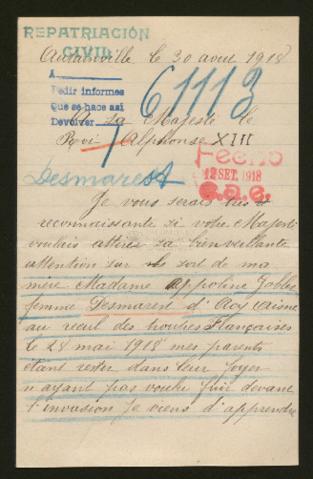 REPATRIACIÓN
CIVIL
le 30 aout 1918
A
Pedir informes
Que se hace así
Devolver
61113
A Sa Majesté le
Roi Alphonse XIII
Fecho
12 SET. 1918
Desmarest
Je vous serais très
reconnaissante si votre Majesté
voulais attirer sa bienveillante
attention sur le sort de ma
mère Madame Appoline
femme Desmarest d'Acy Aisne
au recul des troupes Françaises
le 28 mai 1918 mes parents
étant rester dans leur foyer
n'ayant pas voulu fuir devant
l'invasion Je viens d'apprendre